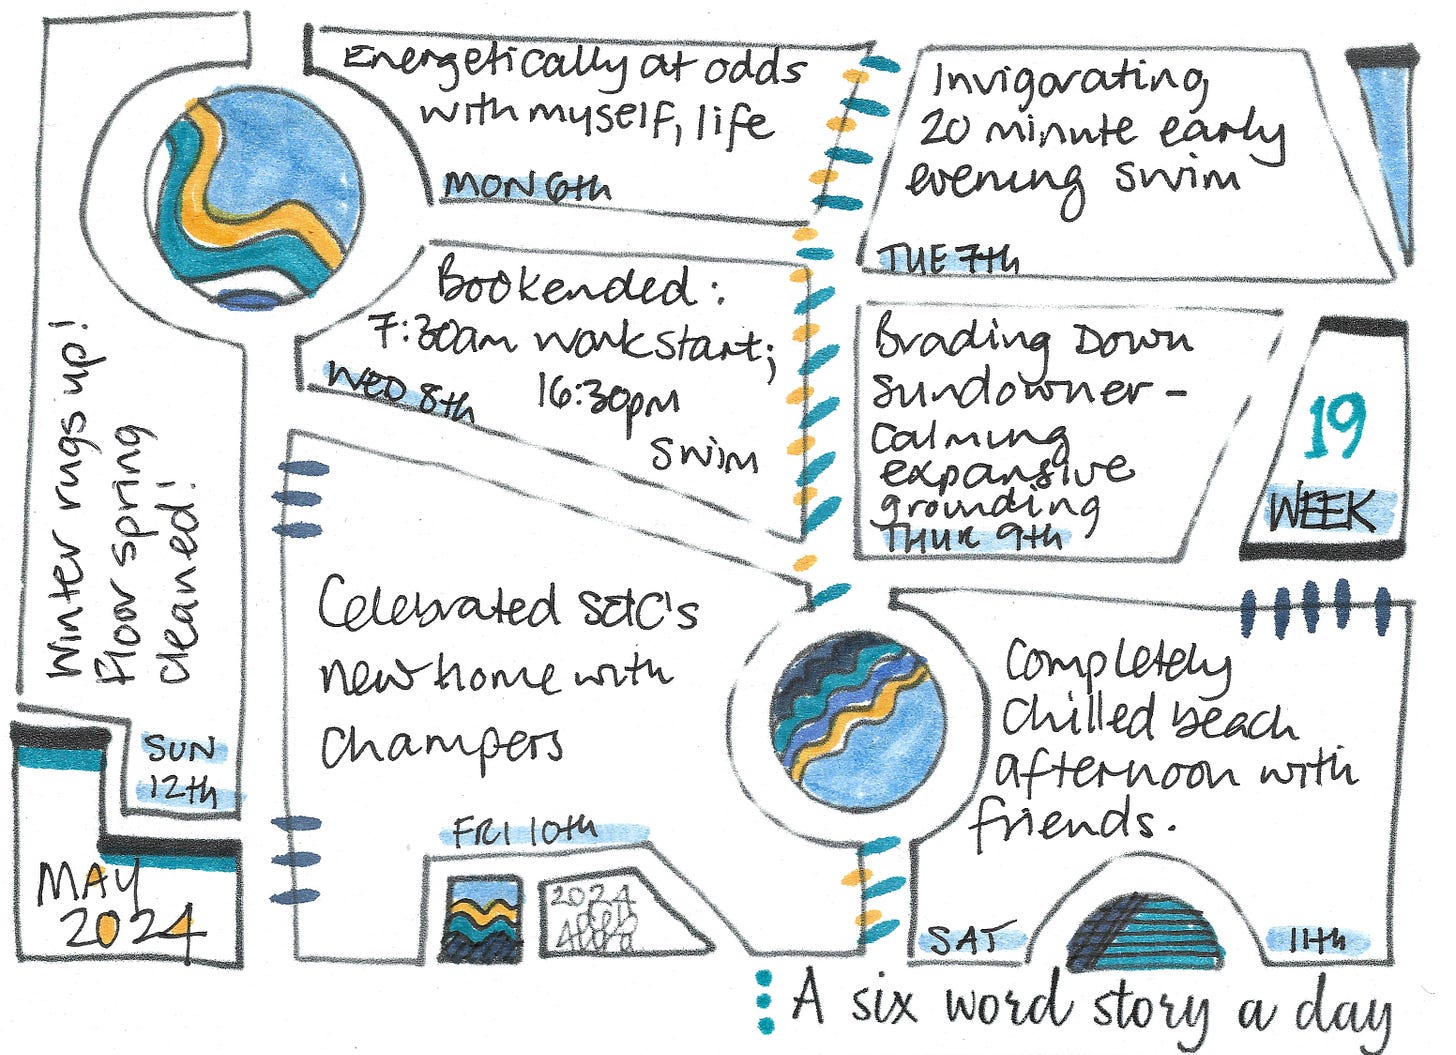 Energetically at odds
with myself, life
MON 6th
Invigorating
20 minute early
evening swim
TUE 7th
Bookended:
7:30am work start;
16:30pm
swim
WED 8th
Brading Down
sundowner -
calming
expansive
grounding
THUR 9th
19
WEEK
Celebrated S&C's
new home with
champers
FRI 10th
2024
Completely
chilled beach
afternoon with
friends.
SAT 11th
Winter rugs up!
floor spring
cleaned!
SUN
12th
MAY
2024
A six word story a day